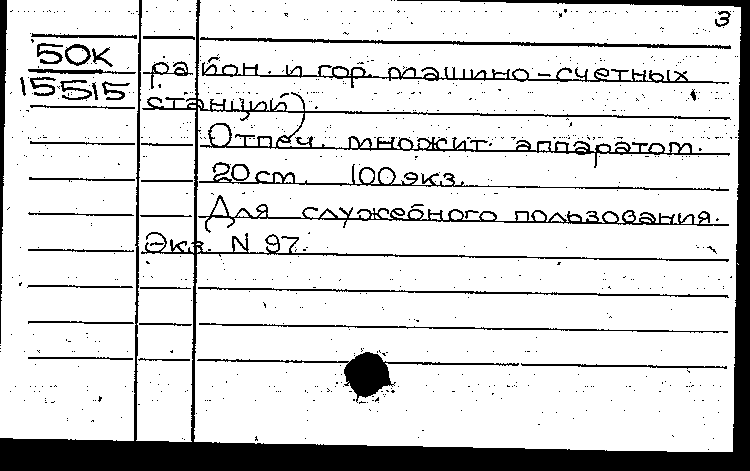 3
50К
15515
район. и гор. машино-счетных
станций).
Отпеч. множит. аппаратом.
20 см. 100 экз.
Для служебного пользования.
Экз. N 97.